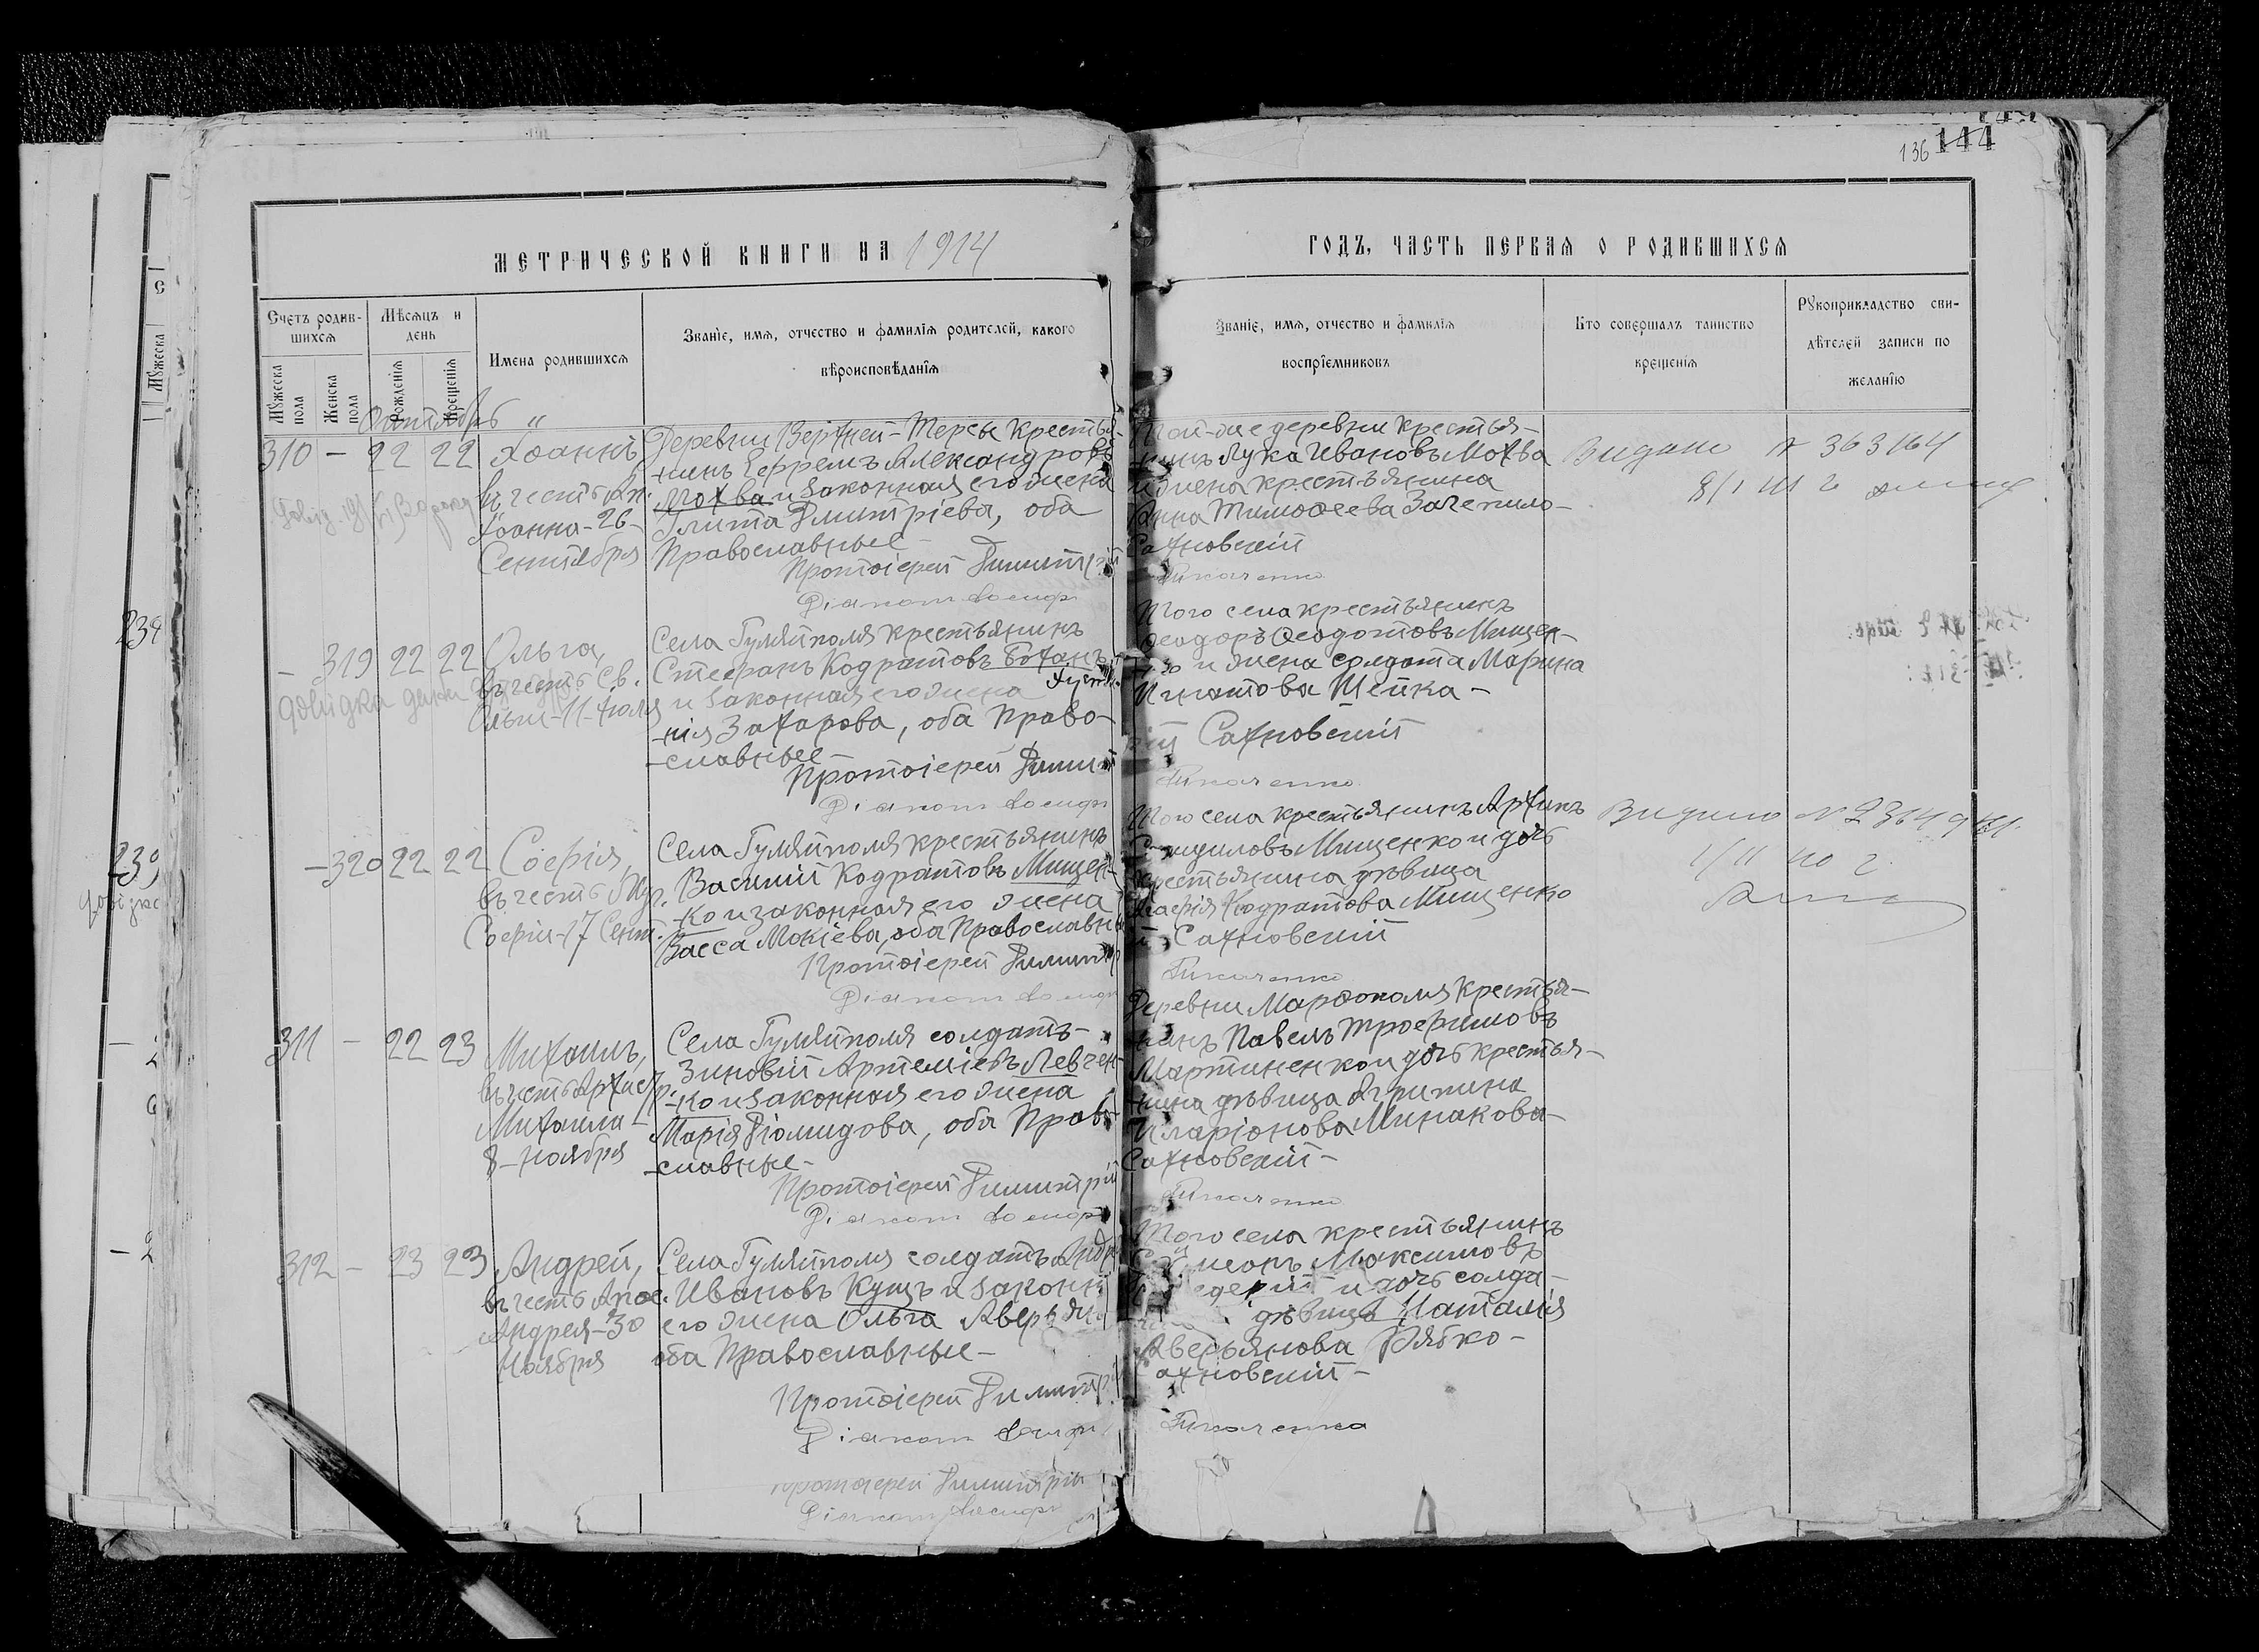 136 144
МЕТРИЧЕСКОЙ КНИГИ НА 1914
ГОДЪ, ЧАСТЬ ПЕРВАЯ О РОДИВШИХСЯ
Счетъ родив-
шихся
Мужеска пола
Женска пола
Мѣсяцъ и
день
Рожденія
Крещенія
Имена родившихся
Званіе, имя, отчество и фамилія родителей, какого
вѣроисповѣданія
Званіе, имя, отчество и фамилія
воспріемниковъ
Кто совершалъ таинство
крещенія
Рукоприкладство сви-
дѣтелей записи по
желанію
Мужеска
Октябрь "
310 - 22 22
Іоаннъ
въ честь Ап.
Іоанна-26-
Сентября
Деревни Верхней-Терсы крестья-
нинъ Ефремъ Александровъ
Мохва и законная его жена
Улита Димитріева, оба
Православные-
Протоіерей Димитрій
Діаконъ Іосифъ
Той-же деревни крестья-
нинъ Лука Ивановъ Мохва
и жена крестьянина
Анна Тимофеева Зачепило-
Сахновскій
Ткаченко
Видано № 363164
- 319 22 22
Ольга,
въ честь Св.
Ольги-11-Іюля
довидка
Села Гуляйполя крестьянинъ
Стефанъ Кодратовъ Боханъ
и законная его жена
-нія Захарова, оба Право-
-славные-
Протоіерей Димит
Діаконъ Іосифъ
Того села крестьянинъ
Феодоръ Феодотовъ Мищен-
ко и жена солдата Марина
Игнатова Шейка-
Сахновскій
Ткаченко
-320 22 22
Софія,
въ честь Мцр.
Софіи-17 Сент.
Села Гуляйполя крестьянинъ
Василій Кодратовъ Мищен-
-ко и законная его жена
Васса Мокіева, оба Православны
Протоіерей Димитр
Діаконъ Іосифъ
Того села крестьянинъ Архипъ
Мищенко и дочь
крестьянина дѣвица
Кодратова Мищенко
Сахновскій
Ткаченко
311 - 22 23
Михаилъ,
въ честь Архистр.
Михаила-
8-Ноября
Села Гуляйполя солдатъ-
Зиновій Артеміевъ Левчен-
-ко и законная его жена
Марія Діомидова, оба Право-
-славные-
Протоіерей Димитрій
Діаконъ Іосифъ
Деревни Марфополя крестья-
нинъ Павелъ Трофимовъ
Мартиненко и дочь крестья-
нина дѣвица Агрипина
Иларіонова Минакова-
Сахновскій-
Ткаченко
312 - 23 23
Андрей,
въ честь Апос.
Андрея-30
Ноября
Села Гуляйполя солдатъ Андр
Ивановъ Кущъ и законн
его жена Ольга Аверьян
оба Православные-
Протоіерей Димитрі
Діаконъ Іосифъ
Того села крестьянинъ
Симеонъ Максимовъ
и дочь солда-
дѣвица Наталія
Аверьянова Рябко-
ахновскій-
Ткаченко
протоіерей Димитрій
Діаконъ Іосифъ